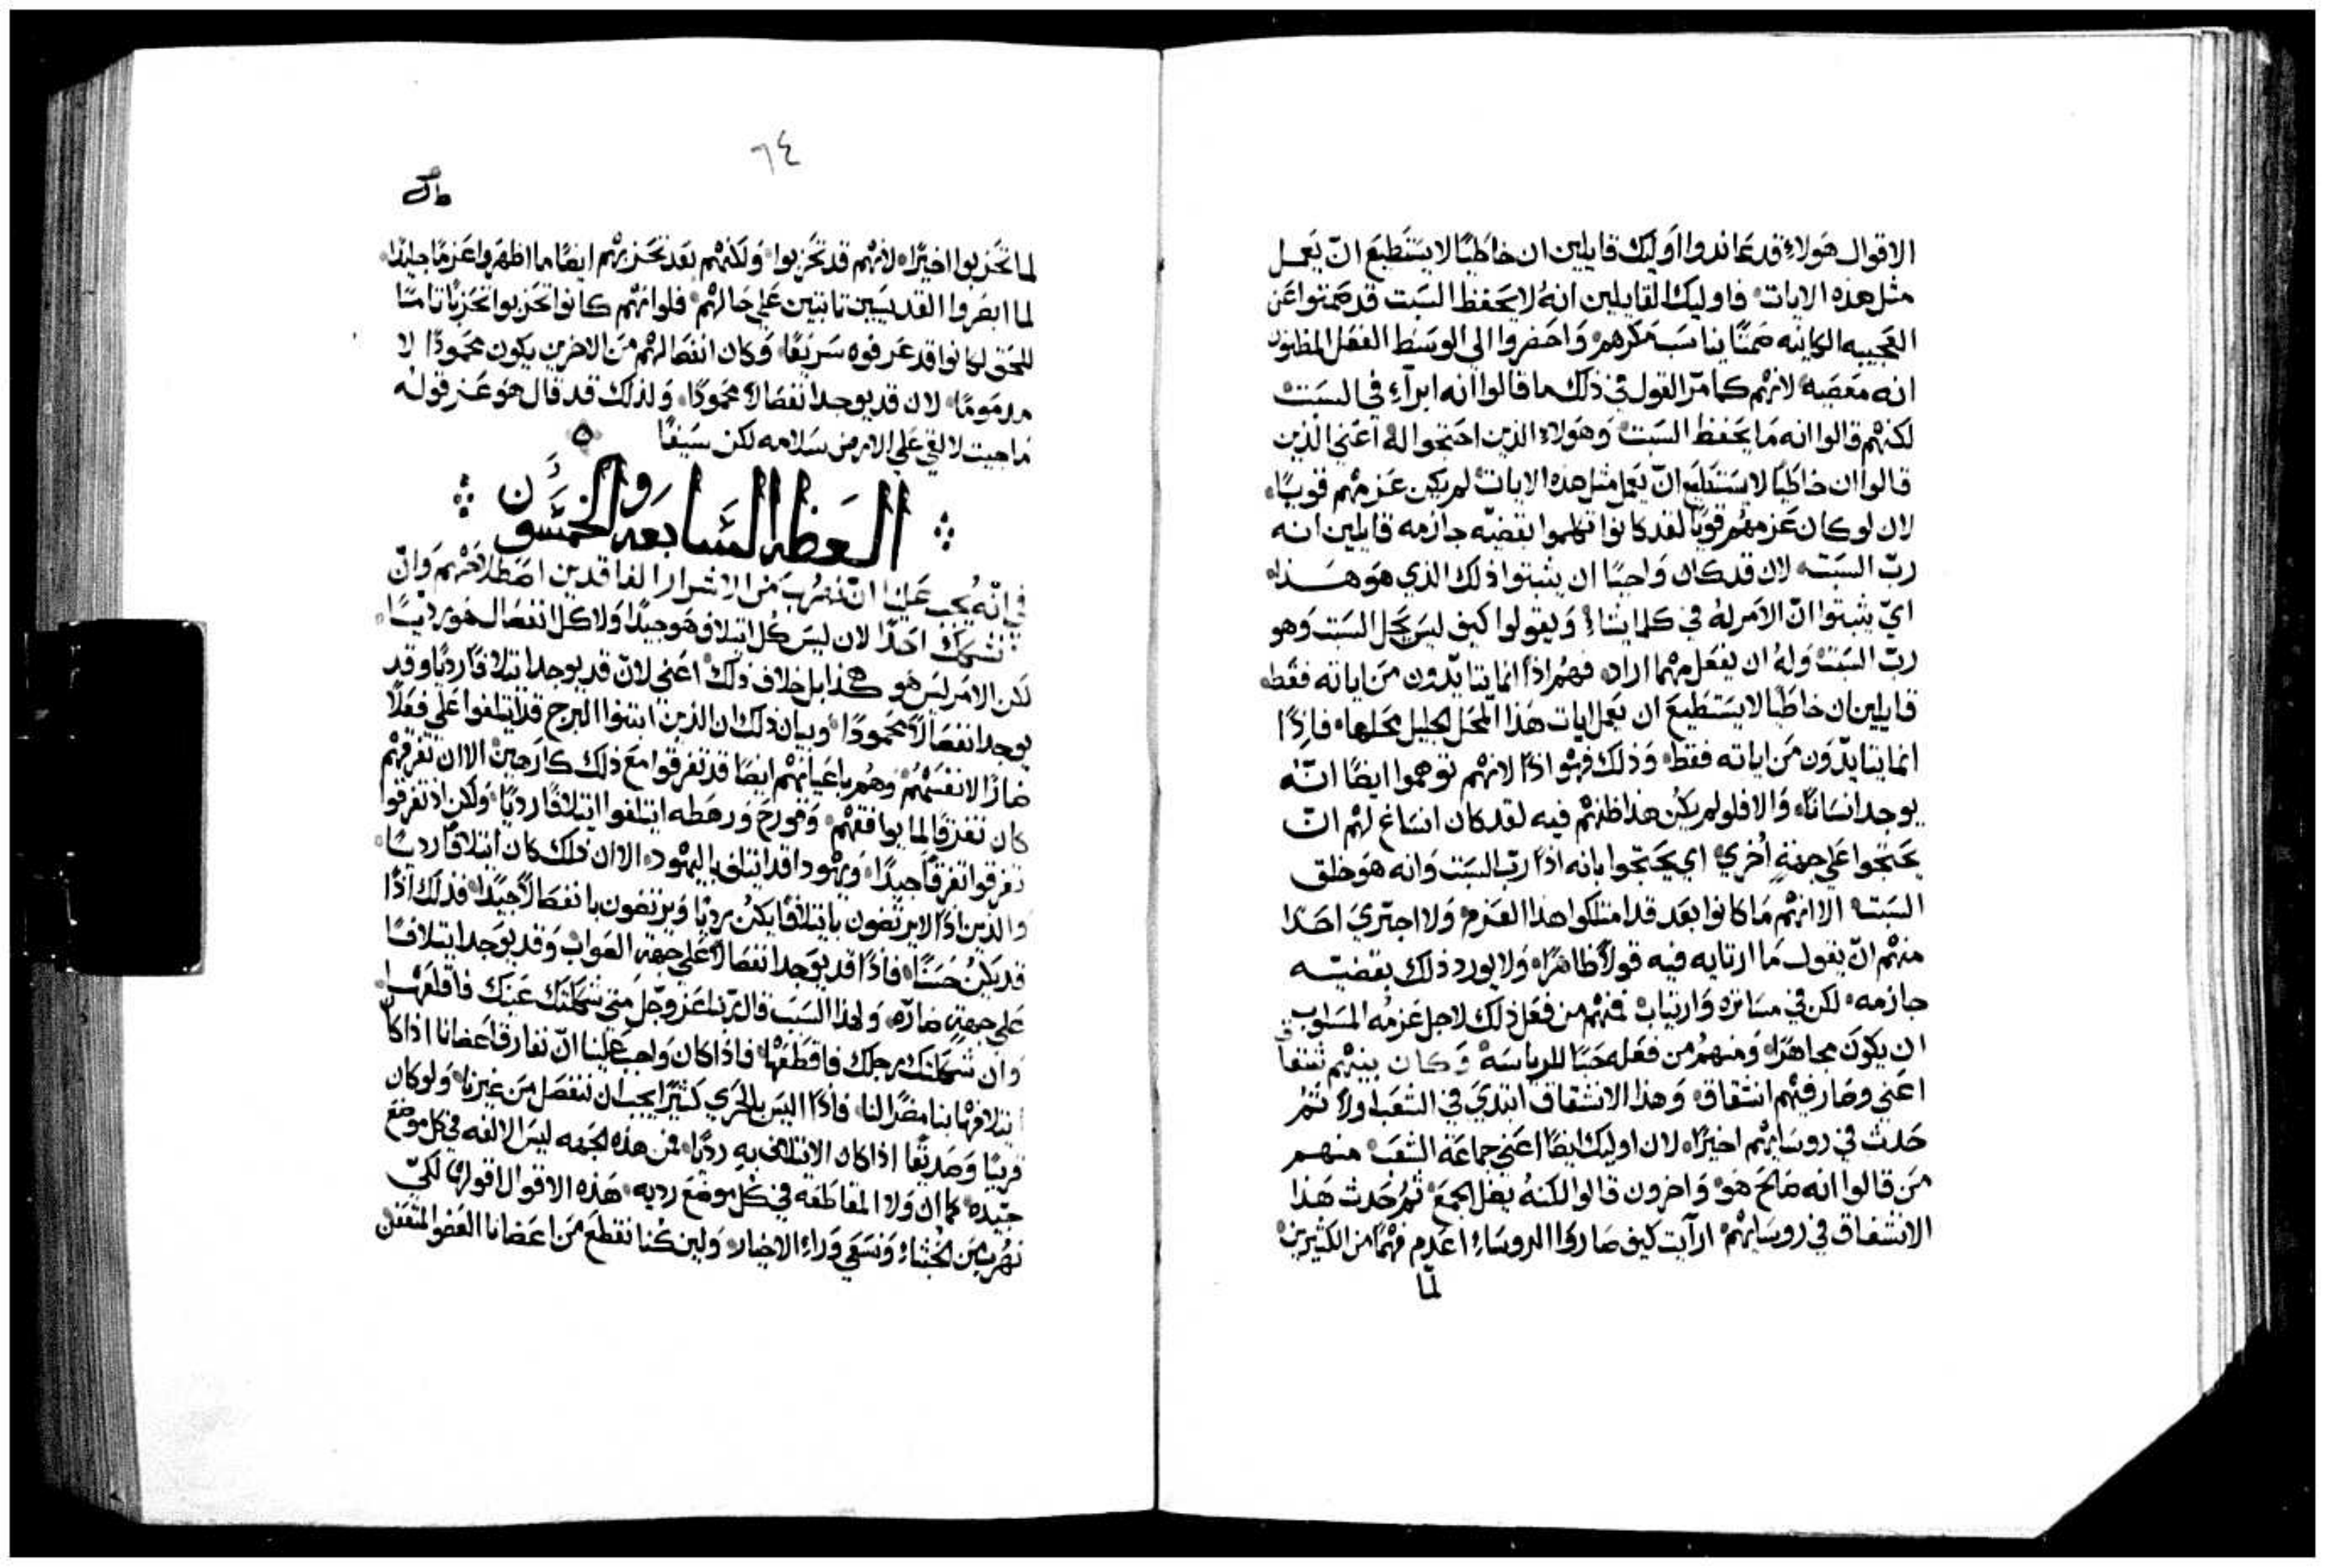 الاقوال هَولاءِ قد عَاندوا اَوليك قايلين ان خاطَيًا لا يَستَطيعَ انّ يَعَمل
مثل هذه الايات فاوليك القايلين انهُ لا يَحَفظ السَبت قد صَمتوا عَن
العَجيبه الكاينه صَمتًا يناسَب مَكرهم وَاحَضروا الي الوسَط الفعَل المظنون
انه مَعَصَيه لانهم كما مرّ القول في ذلك ما قالوا انه ابرآءِ في السَبت
لكنهم قالوا انه مَا يَحَفظ السَبت وَهَولاءِ الذين احَتجوا لهُ اعَني الذين
قالوا ان خاطَيًا لا يَستَطَيع انّ يَعَمل مثل هذه الايات لم يكن عَزمهم قويًا
لان لو كان عَزمهم قويًا لقد كانوا تكلموا بقضيّه جازمه قايلين انه
ربّ السَبت لان قد كان وَاجبًا ان يثبتوا ذلك الذي هَو هَذا
ايّ يثبتوا انّ الاَمر لهُ في كلما يشاءُ وَيقولوا كيف ليسَ يَحل السَبت وَهو
ربّ السَبت وَلهُ ان يفعَل مهما اراد فهُم اذًا انما يتايّدون من اياته فقط
قايلين ان خاطَيًا لا يَستَطيعَ ان يَعَمل ايات هَذا المحَل الجليل مَحَلها فاذًا
انما يتايّدَون مَن اياته فقط وَذلك فهَو اذًا لانهم توهموا ايضًا انّه
يوجد انسَانًا وَالا فلو لم يكُن هَذا ظنهم فيه لقد كان انسَاغ لهم انّ
يَحَتجوا عَلي جهةٍ اُخري اي يَحَتجوا بانه اذًا ربّ السَبت وَانه هَو خلق
السَبت الا انهم مَا كانوا بَعَد قد امتلكوا هذا العَزم وَلا اجتري احَدًا
منهم انّ يقول مَا ارتايه فيه قولاً ظاهَرًا وَلا يورد ذلك بقضيّه
جازمه لكن في مسَاتره وَارتياب فمنهم من فعَل ذلك لاجل عَزمُه المسَلوب
ان يكونَ مجاهَرًا وَمنهُم من فعَله حَبًا للرياسَة وَكان بينهم شَقاق
اعَني وصَار فيهم انشقاق وَهذا الانشقاق ابتديَ في الشَعَب اولاً ثم
حَدث في روسَايهم اخيرًا لان اوليك ايضًا اعَني جماعَة الشعَب منهم
مَن قالوا انه صَالح هَو وَاخرون قالوا لكنهُ يضَل الجمَع ثم حَدث هَذا
الانشقاق في روسَايهم ارآيت كيف صَاروا الروسَاءِ اعَدم فهمًا من الكثيرين
لمّا
٦٤
لما تحَزبوا اخيرًا لانهم قد تحَزبوا وَلكنهم بَعَد تحَزبهم ايضًا ما اظهَروا عَزمًا جليلاً
لما ابصَروا القديسَيين ثابتين عَلي حَالهم فلو انهم كانوا تحَزبوا تحَزبًا تامًا
للحَق لكانوا قد عَرفوه سَريَعًا وَكان انفصَالهم مَن الاخرين يكون مَحَمودًا لا
مذمَومًا لان قد يوجد انفصَالاً مَحَمودًا وَلذلك قد قال هَو عَز قوله
مَا جيت لالقي عَلي الارض سَلامه لكن سَيفًا
العَظه السَابعَه والخمسَون
في انّه يُجب عَلينا انّ نهرُب مَن الاشرار الفاقدين اصَطلاحَهم وَانّ
شككَ احَدًا لان ليسَ كُل ايتلاف هَو جيدًا وَلا كل انفصَال هَو رديًا
لكن الامَر ليَس هَو هكذا بل خلاف ذلك اعَني لانّ قد يوجد ايتلافًا رديًا وقد
يوجد انفصَالاً مَحَمودًا وَبيان ذلك ان الذين ابتنوا البرج قد ايتلفوا عَلي فعَلاً
ضارًا لانفسَهم وَهُم باعَيانهم ايضًا قد تفرقوا مَع ذلك كارهين الا ان تفرقهم
كان تفرقًا لما يوافقهم وَقورح وَرهَطه ايتلفوا ايتلافًا رديًا وَلكن اذ تفرقوا
تفرقوا تفرقًا جيدًا وَيهوذا قد ايتلف باليهود الا ان ذلك كان ايتلافًا رديًا
وَالذين اذًا لا يرتضون بايتلافًا يكن رديًا وَيرتضون بانفصَالاً جيدًا فذلك اذًا
قد يَكن حَسَنًا فاذًا قد يوَجد انفصَالاً عَلي جهة الصَواب وَقد يوَجد ايتلافًا
عَلي جهةٍ ضارّه وَلهَذا السَبب قال ربنا عَز وجَل متي شككتك عَينك فاقلعَها
وَان شككتك رجلك فاقطَعَها فاذًا كان وَاجب عَلينا انّ نفارق اعَضانا اذا كان
ايتلافها بنا مضَرًا لنا فاذًا اليسَ بالحَري كثيرًا يجب ان ننفصَل مَن غيرنا وَلو كان
قريبًا وَصَديقًا اذا كان الايتلاف به رديًا فمن هَذه الجهه ليسَ الالفه في كل موضَع
جيّده كما ان وَلا المقاطَعَه في كل موضَع رديه هَذه الاقوال اقولها لكيّ
نهُرب مَن الخبثاءِ وَنسَعَي وَراءِ الاخيار وَلين كنا نقطَع مَن اعَضانا العَضو المتعَفن